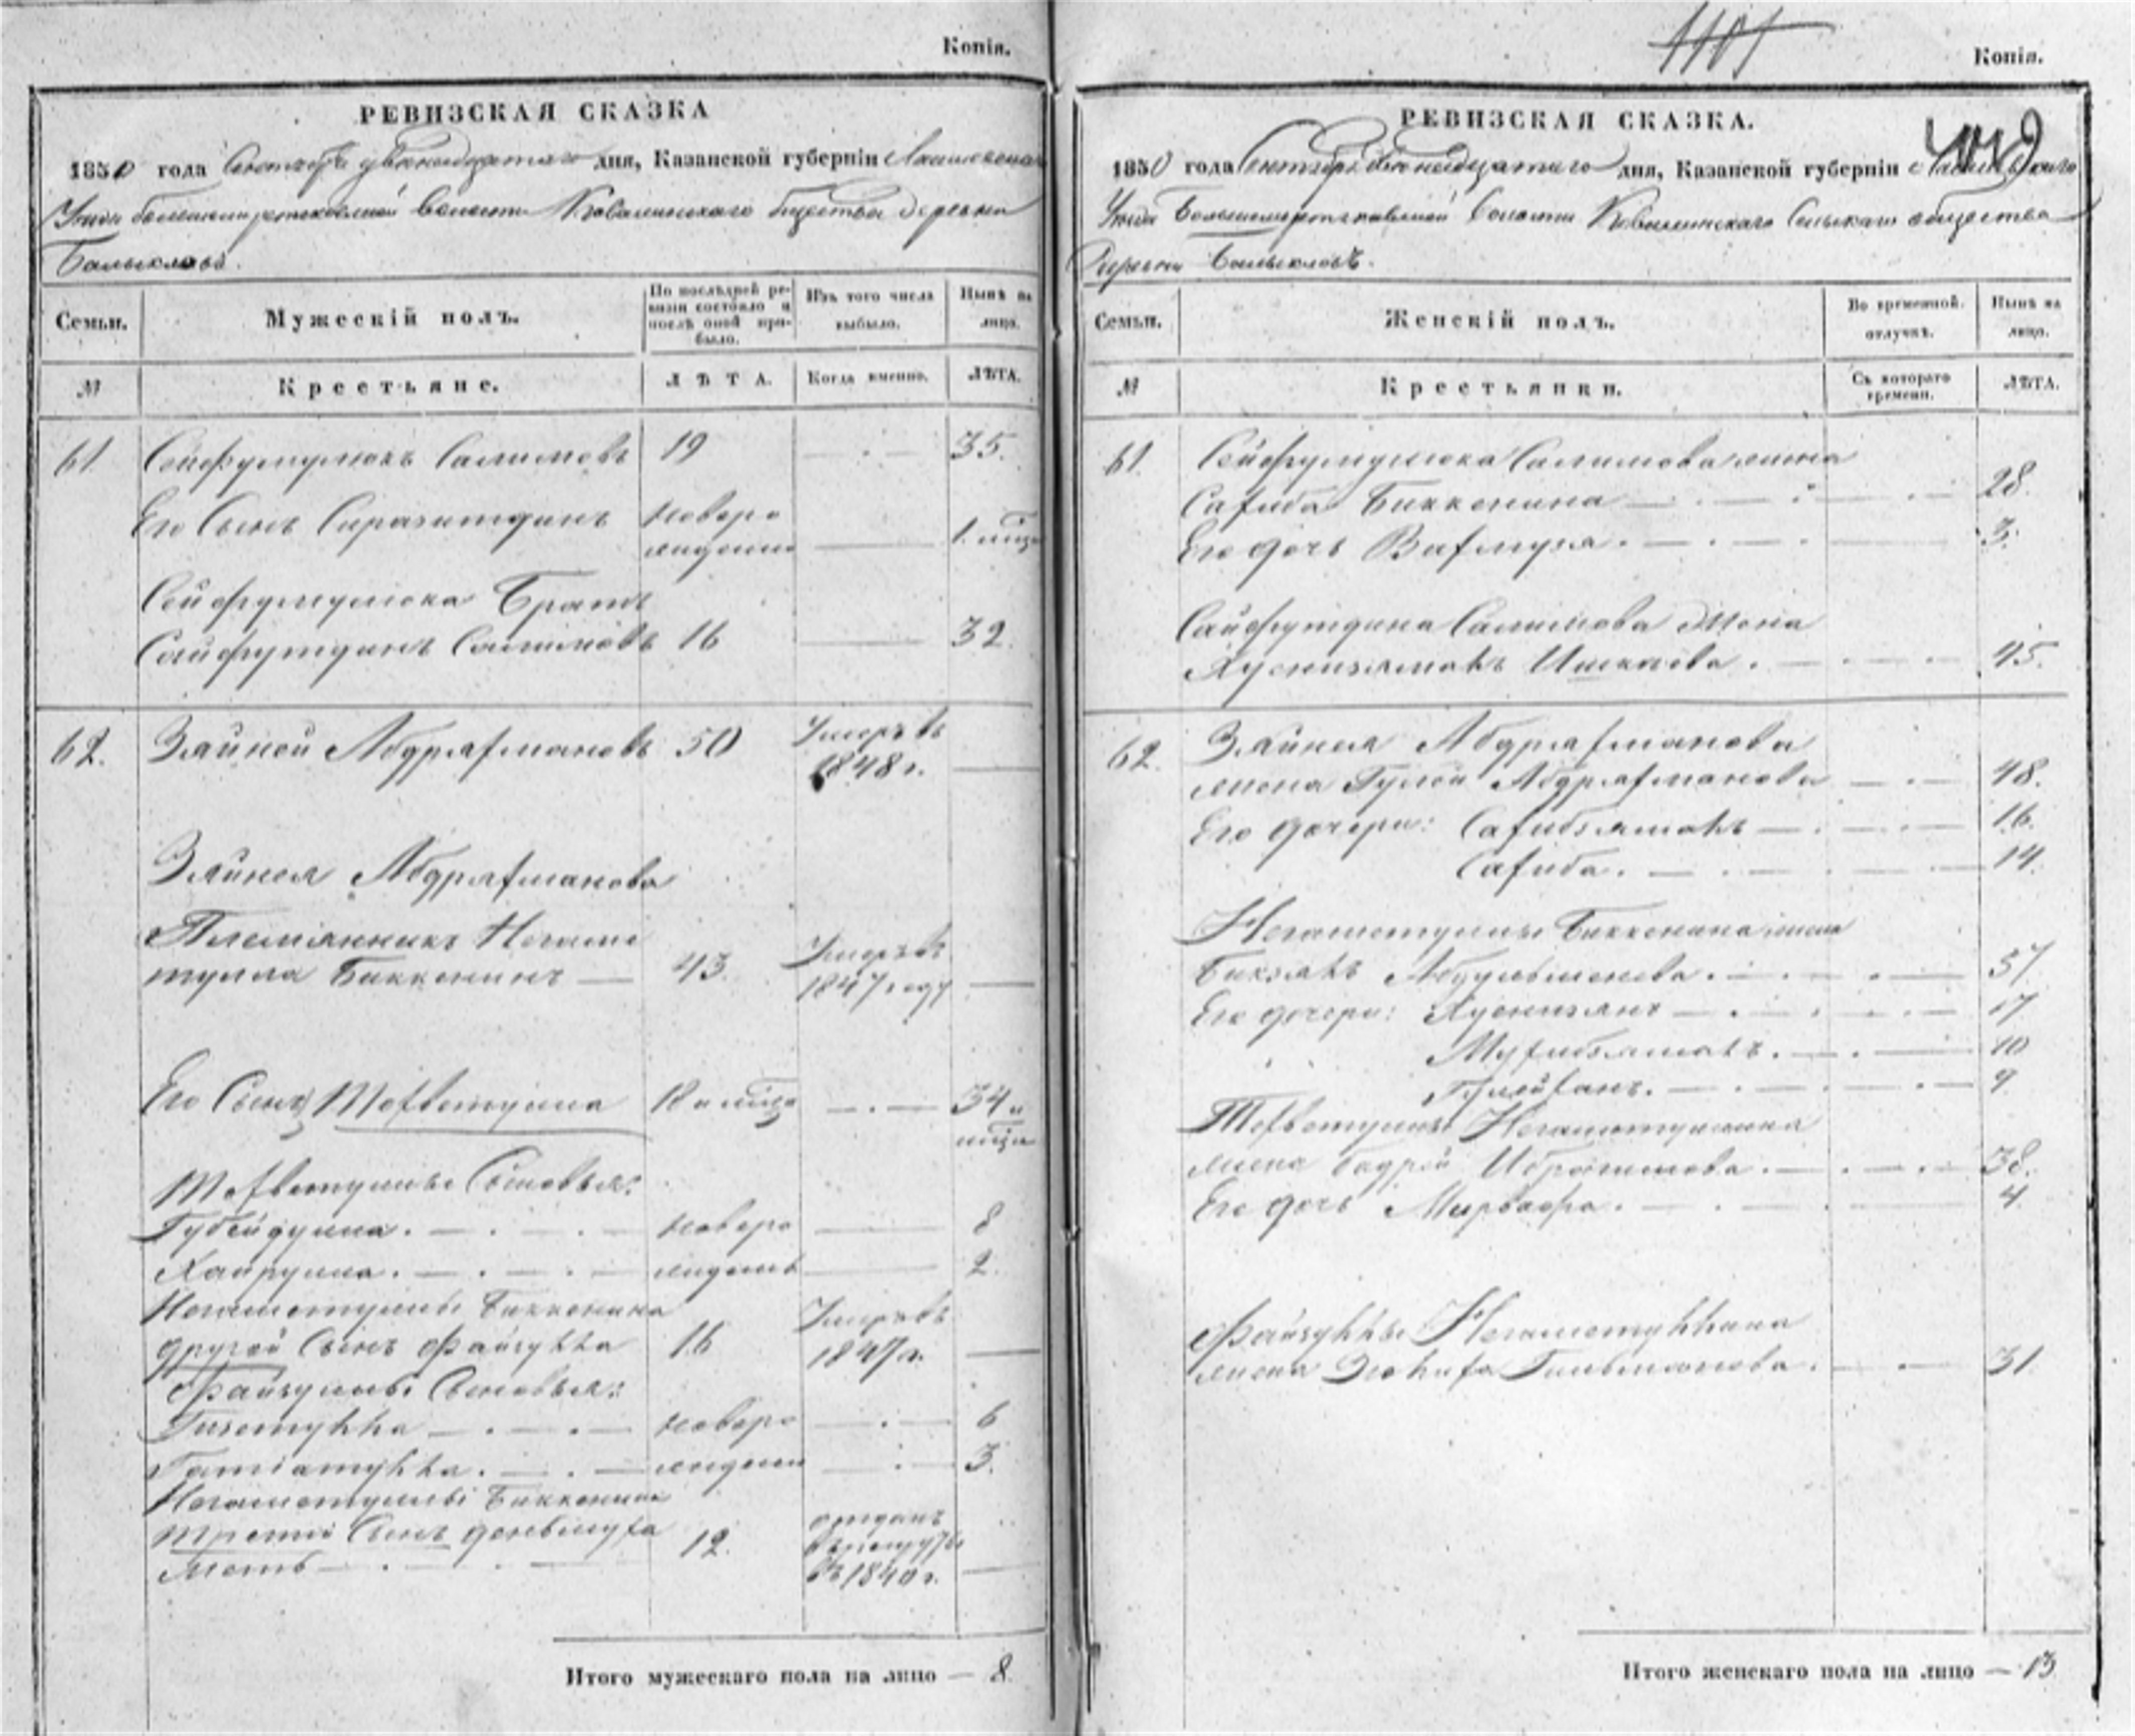 Копія.
РЕВИЗСКАЯ СКАЗКА
1850 года Сентября двѣнадцатаго дня, Казанской губерніи Лаишевскаго
Уѣзда волости Ковалинскаго Общества деревни
Балыклова.
Семьи.
Мужескій полъ.
По послѣдней ре-
визіи состояло и
послѣ оной при-
было.
Изъ того числа
выбыло.
Нынѣ на
лицо.
№
Крестьяне.
ЛѢТА.
Когда именно.
ЛѢТА.
61 Сейфулмулюкъ Салимовъ 19 35.
Его Сынъ Сиразитдинъ новоро
жденный 1. мѣся
Сейфулмулюка Братъ
Сайфутдинъ Салимовъ 16 32.
62. Зяйней Абдряхмановъ 50 Умеръ въ
1848 г.
Зяйнея Абдряхманова
Племянникъ Негаме
тулла Биккенинъ 43. Умеръ въ
1847 году
Его Сынъ Тохветулла 18 и мѣся 34 и
мѣся
Тохветуллы Сыновья:
Губейдулла. новоро 8
Хайрулла. жденъ 2.
Негаметуллы Биккенина
другой Сынъ Файзулла 16 Умеръ въ
1847 г.
Файзуллы Сыновья:
Гизетулла новоро 6
Гатіатулла. жденн 3.
Негаметуллы Биккенина
третій Сынъ
метъ 12. отданъ
въ рекруты
въ 1840 г.
Итого мужескаго пола на лицо — 8.
Копія.
РЕВИЗСКАЯ СКАЗКА.
1850 года Сентября двѣнадцатаго дня, Казанской губерніи Лаишевскаго
Уѣзда Волости Ковалинскаго Сельскаго общества
Деревни Балыкловъ.
Семьи.
Женскій полъ.
Во временной.
отлучкѣ.
Нынѣ на
лицо.
№
Крестьянки.
Съ котораго
времени.
ЛѢТА.
61. Сейфулмулюка Салимова жена
Сахиба Биккенина 28.
Его дочь 3.
Сайфутдина Салимова Жена
Хуснизямалъ Ишкаева. 45.
62. Зяйнея Абдряхманова
жена Гулей Абдряхманова 48.
Его дочери: Сахибзямалъ 16.
Сахиба. 14.
Негаметуллы Биккенина жена
57.
Его дочери: Хуснизянъ 17
Мухибзямалъ. 10
9
Тохветуллы Негаметуллина
жена Бадрей Ибрагимова. 38.
Его дочь 4.
Файзуллы Негаметуллина
жена Зюлиха Гильманова. 31.
Итого женскаго пола на лицо — 13